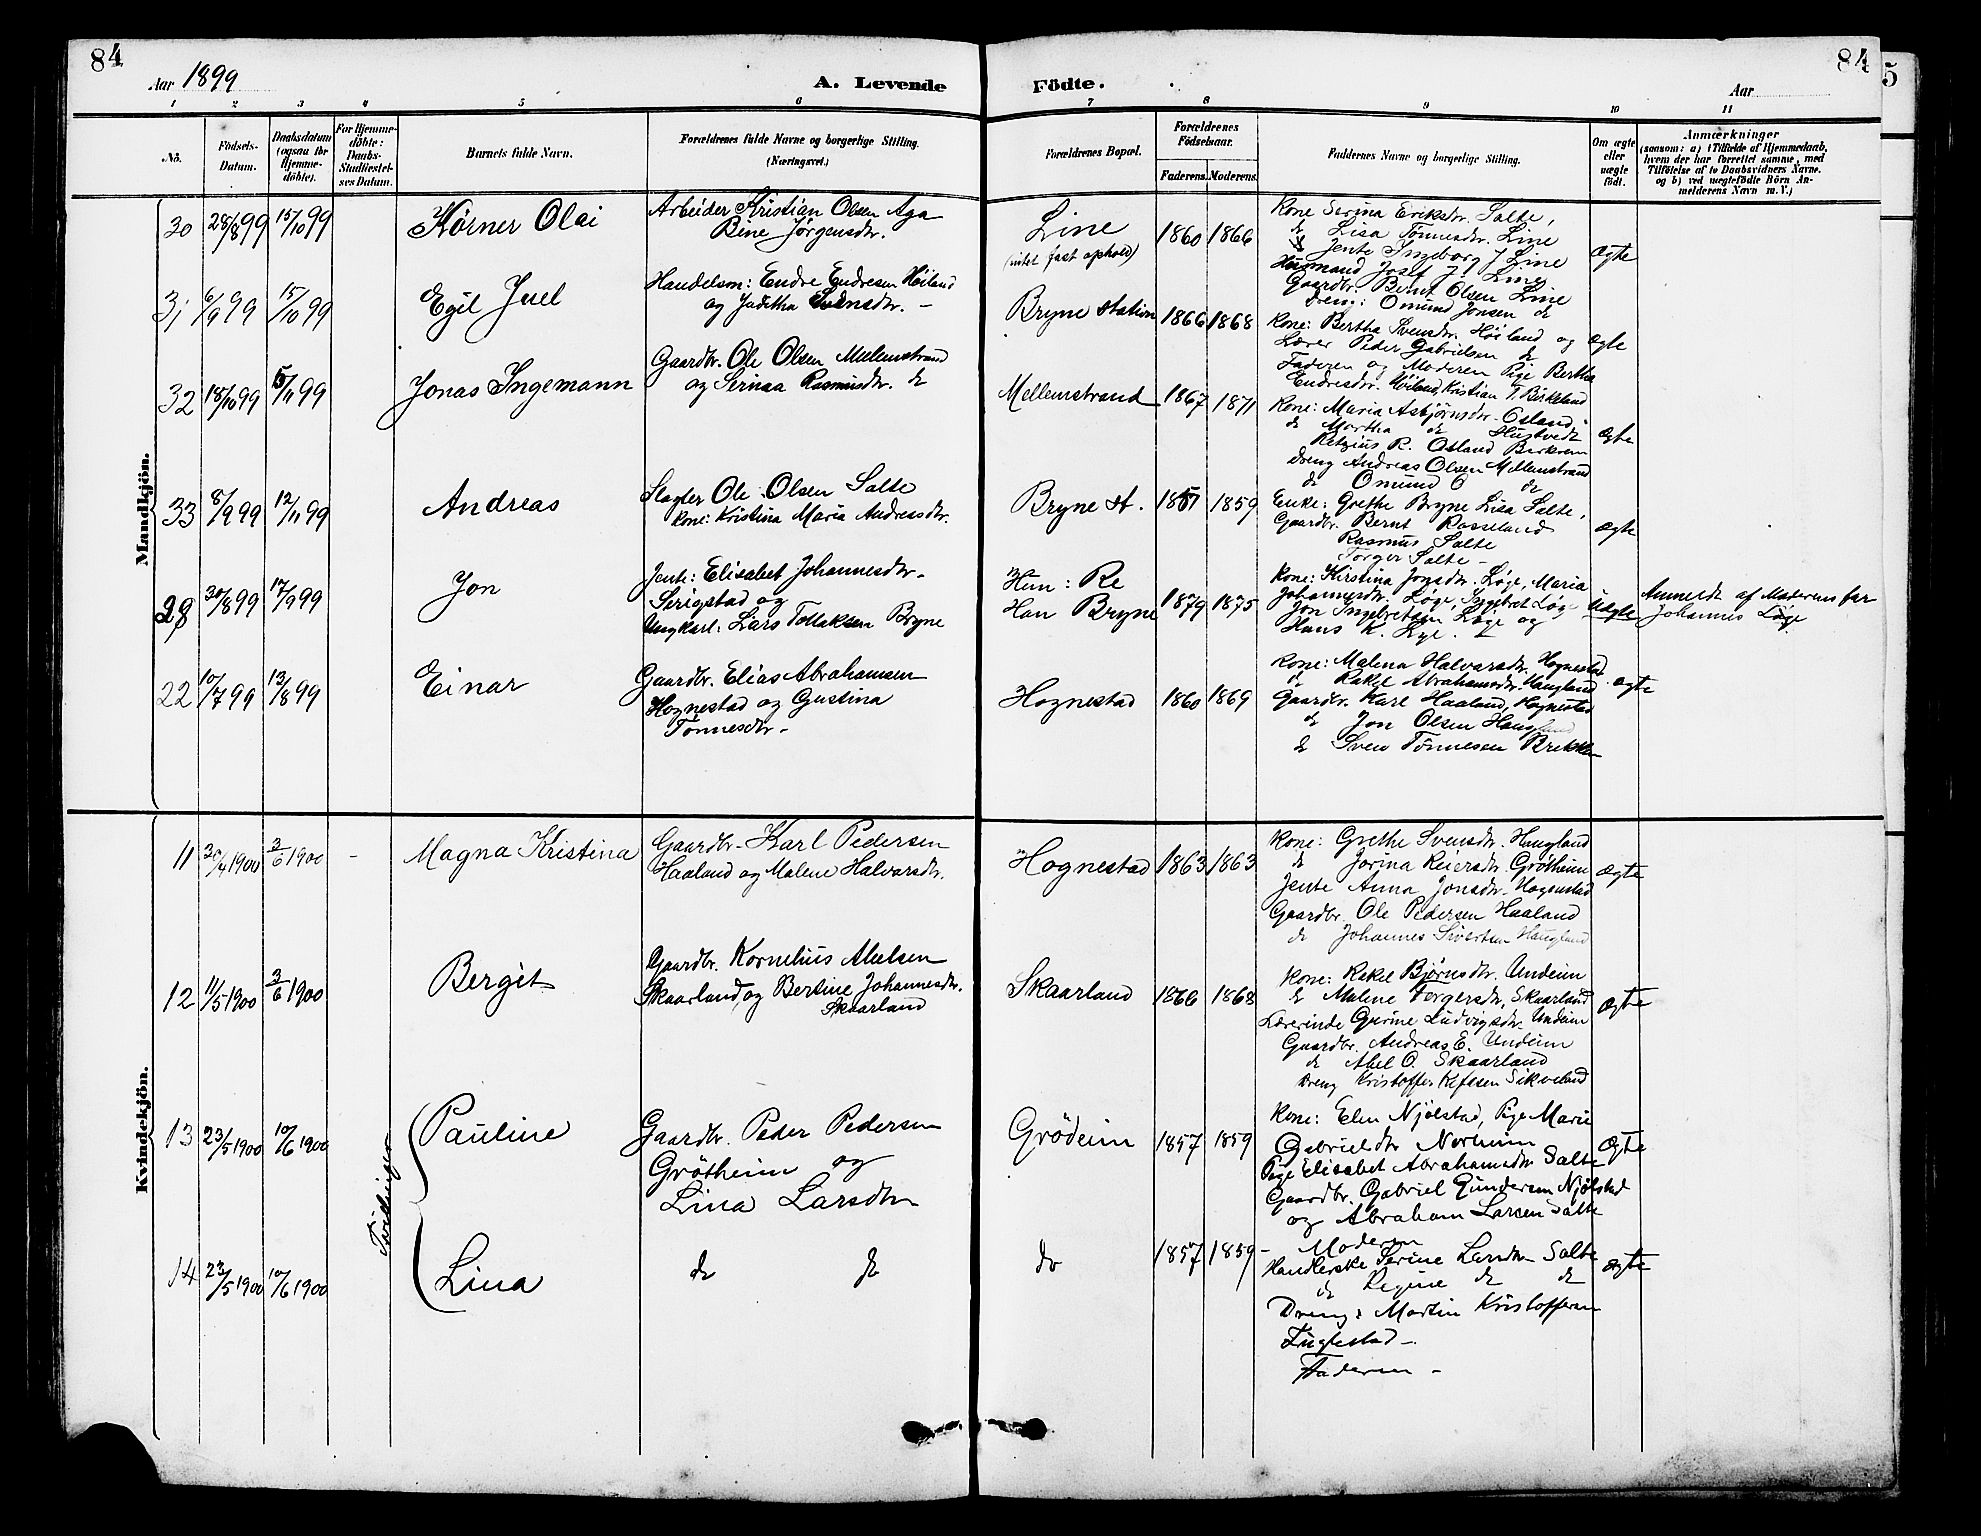 84
84
5
Aar 1899
A. Levende
Födte.
Aar
1 2 3 4 5 6 7 8 9 10 11
No.
Födsels-Datum.
Daabsdatum (ogsaa for Hjemmedöbte).
For Hjemmedöbte: Daabs-Stadfæstelses Datum.
Barnets fulde Navn.
Forældrenes fulde Navne og borgerlige Stilling.
(Næringsvei.)
Forældrenes Bopæl.
Forældrenes Födselsaar.
Faderens. Moderens.
Faddernes Navne og borgerlige Stilling.
Om ægte eller uægte födt.
Anmærkninger
(saasom: a) i Tilfælde af Hjemmedaab,
hvem der har forrettet samme, med
Tilföielse af to Daabsvidners Navne.
og b) ved uægtefödte Börn Anmelderens Navn m. V.)
Mandkjön.
30 28/8 99 15/10 99 Kørner Olai
Arbeider Kristian Olsen Aga
Bine Jørgensdtr.
Line
(intet fast ophold)
1860 1866
Kone Serina Eriksdtr. Salte,
do Lisa Tønnesdtr. Line
Jente Ingeborg J Line
Husmand Josef J. Line
Gaardbr. Bernt Olsen Line
Dreng: Omund Jonsen do
ægte
31 6/9 99 15/10 99 Egil Juel
Handelsm: Endre Endresen Høiland
og Juditha Svensdtr. –
Bryne Station 1866 1868
Kone: Bertha Svensdtr. Høiland og
Lærer Peder Gabrielsen do
Faderen og Moderen Pige Bertha
Endresdtr. Høiland, Kristian T. Birkeland
ægte
32 18/10 99 5/11 99 Jonas Ingemann
Gaardbr. Ole Olsen Mellemstrand
og Serina Rasmusdtr. do
Mellemstrand 1867 1871
Kone: Maria Asbjørnsdtr. Osland.
do Martha do Hustvedt
Retzius R. Osland Birkrem
Dreng Andreas Olsen Mellemstrand
do Omund O do
ægte
33 8/9 99 12/11 99 Andreas
Slagter Ole Olsen Salte
Kone: Kristina Maria Andreasdtr.
Bryne St. 1851 1859
Enke: Grethe Bryne Lisa Salte,
Gaardbr. Bernt Rosseland
Rasmus Salte
Torger Salte –
ægte
28 30/8 99 17/9 99 Jon
Jente: Elisabet Johannesdtr.
Serigstad og
Ungkarl: Lars Tollaksen Bryne
Hun: Re
Han Bryne
1879 1875
Kone: Kirstina Jonsdtr. Løge, Maria
Johannesdtr. Løge, Ingebret Løge
Jon Ingebretsen Løge og
Hans K. Lye.
Uægte
Anmeldt af Moderens far
Johannes Løge
22 10/7 99 13/8 99 Einar
Gaardbr. Elias Abrahamsen
Hognestad og Gustina
Tønnesdtr. –
Hognestad 1860 1869
Kone: Malena Halvarsdtr. Hognestad
do Rakel Abrahamsdtr. Haugland
Gaardbr. Karl Haaland, Hognestad
do Jon Olsen Haugland
do Sven Tønnesen Brekken
ægte
Kvindekjön.
11 30/4 1900 3/6 1900 – Magna Kristina
Gaardbr. Karl Pedersen
Haaland og Malene Halvarsdtr.
Hognestad 1863 1863
Kone: Grethe Svensdtr. Haugland
do Jorina Reiersdtr. Grötheim
Jente Anna Jonsdtr. Hognestad
Gaardbr. Ole Pedersen Haaland
do Johannes Sivertsen Haugland
ægte
12 11/5 1900 3/6 1900 Bergit
Gaardbr. Kornelius Abelsen
Skaarland og Bertine Johannesdtr.
Skaarland
Skaarland 1866 1868
Kone: Rakel Bjørnsdtr. Undeim
do Malene Torgersdtr, Skaarland
Lærerinde Gurine Ludvigsdtr. Undeim
Gaardbr. Andreas E. Undeim
do Abel O. Skaarland
Dreng Kristoffer Sikveland
ægte
Tvillinger
13 23/5 1900 10/6 1900 Pauline
Gaardbr. Peder Pedersen
Grötheim og
Lina Larsdtr
Grödeim 1857 1859
Kone: Elen Njölstad, Pige Marie
Gabrielsdtr Norheim
Pige Elisabet Abrahamsdtr Salte
Gaardbr. Gabriel Gundersen Njölstad
og Abraham Larsen Salte
ægte
14 23/5 1900 10/6 1900 Lina
do do
do
1857 1859 –
Moderen
Handlerske Serine Larsdtr Salte
do Regine do do
Dreng: Martin Kristoffersen
Fuglestad –
Faderen –
ægte